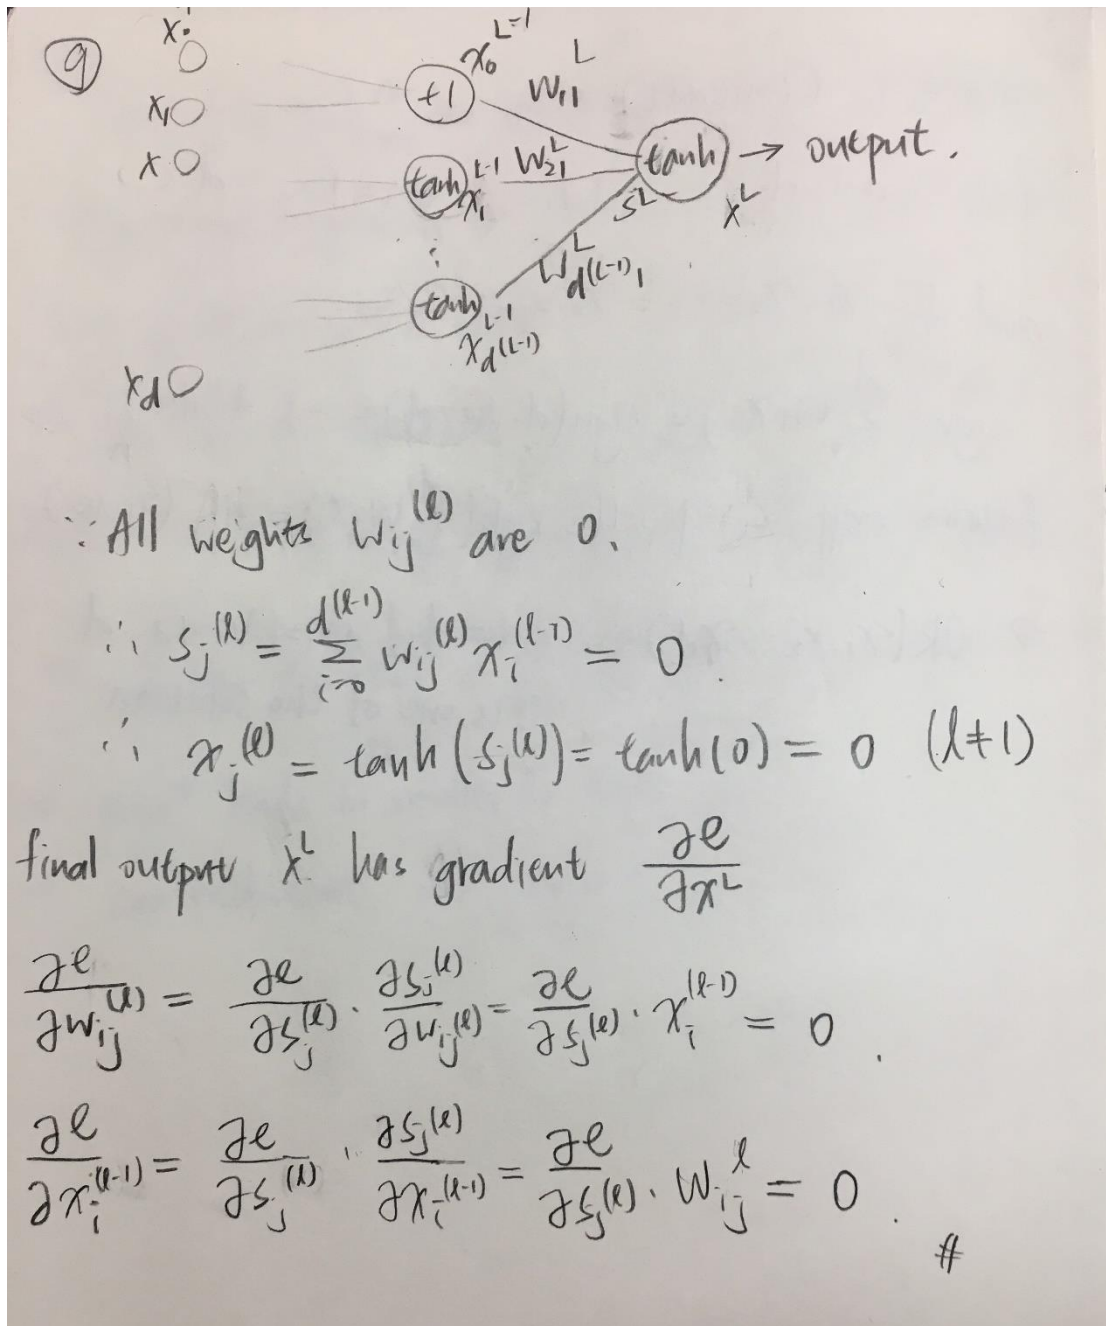 ⑨
x₀
x₁
x
x_d
+1 x₀^{L-1} W₁₁^L
tanh x₁^{L-1} W₂₁^L
⋮
tanh x_{d^{(L-1)}}^{L-1} W_{d^{(L-1)}1}^L
s^L tanh x^L → output.
∵ All weights W_{ij}^{(l)} are 0.
∴ s_j^{(l)} = \sum_{i=0}^{d^{(l-1)}} w_{ij}^{(l)} x_i^{(l-1)} = 0.
∴ x_j^{(l)} = tanh(s_j^{(l)}) = tanh(0) = 0 (l≠1)
final output x^L has gradient ∂e/∂x^L
∂e/∂w_{ij}^{(l)} = ∂e/∂s_j^{(l)} · ∂s_j^{(l)}/∂w_{ij}^{(l)} = ∂e/∂s_j^{(l)} · x_i^{(l-1)} = 0.
∂e/∂x_i^{(l-1)} = ∂e/∂s_j^{(l)} · ∂s_j^{(l)}/∂x_i^{(l-1)} = ∂e/∂s_j^{(l)} · W_{ij}^l = 0.
#